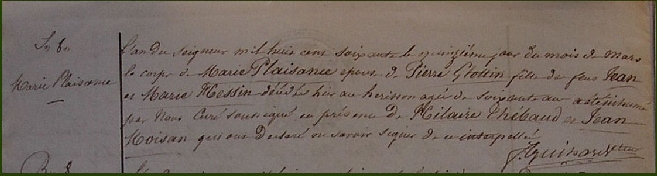 Marie Plaisance
L'an du Seigneur mil huit cent soixante le quinzième jour du mois de mars
le corps de Marie Plaisance épouse de Pierre Glotin fille de feus Jean
et Marie Hessin décédée hier au herisson agée de soixante ans a été inhumé
par nous Curé soussigné en présence de Hilaire Thibaud et Jean
Moisan qui ont déclaré ne savoir signer de ce interpellé
J. Guihard